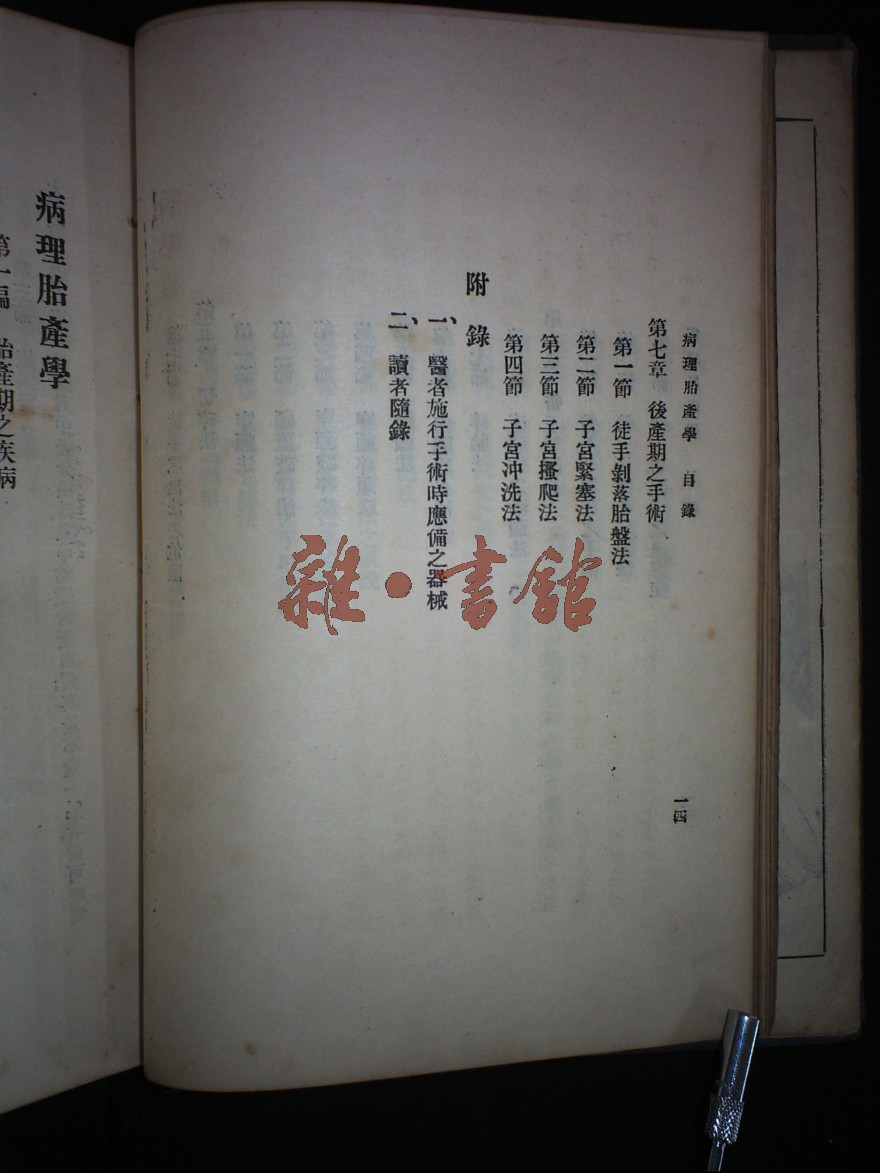 病理胎產學 目錄
第七章 後產期之手術
第一節 徒手剝落胎盤法
第二節 子宮緊塞法
第三節 子宮搔爬法
第四節 子宮沖洗法
附錄
一、醫者施行手術時應備之器械
二、讀者隨錄
一四
病理胎產學
第一編 胎產期之疾病
雜·書館